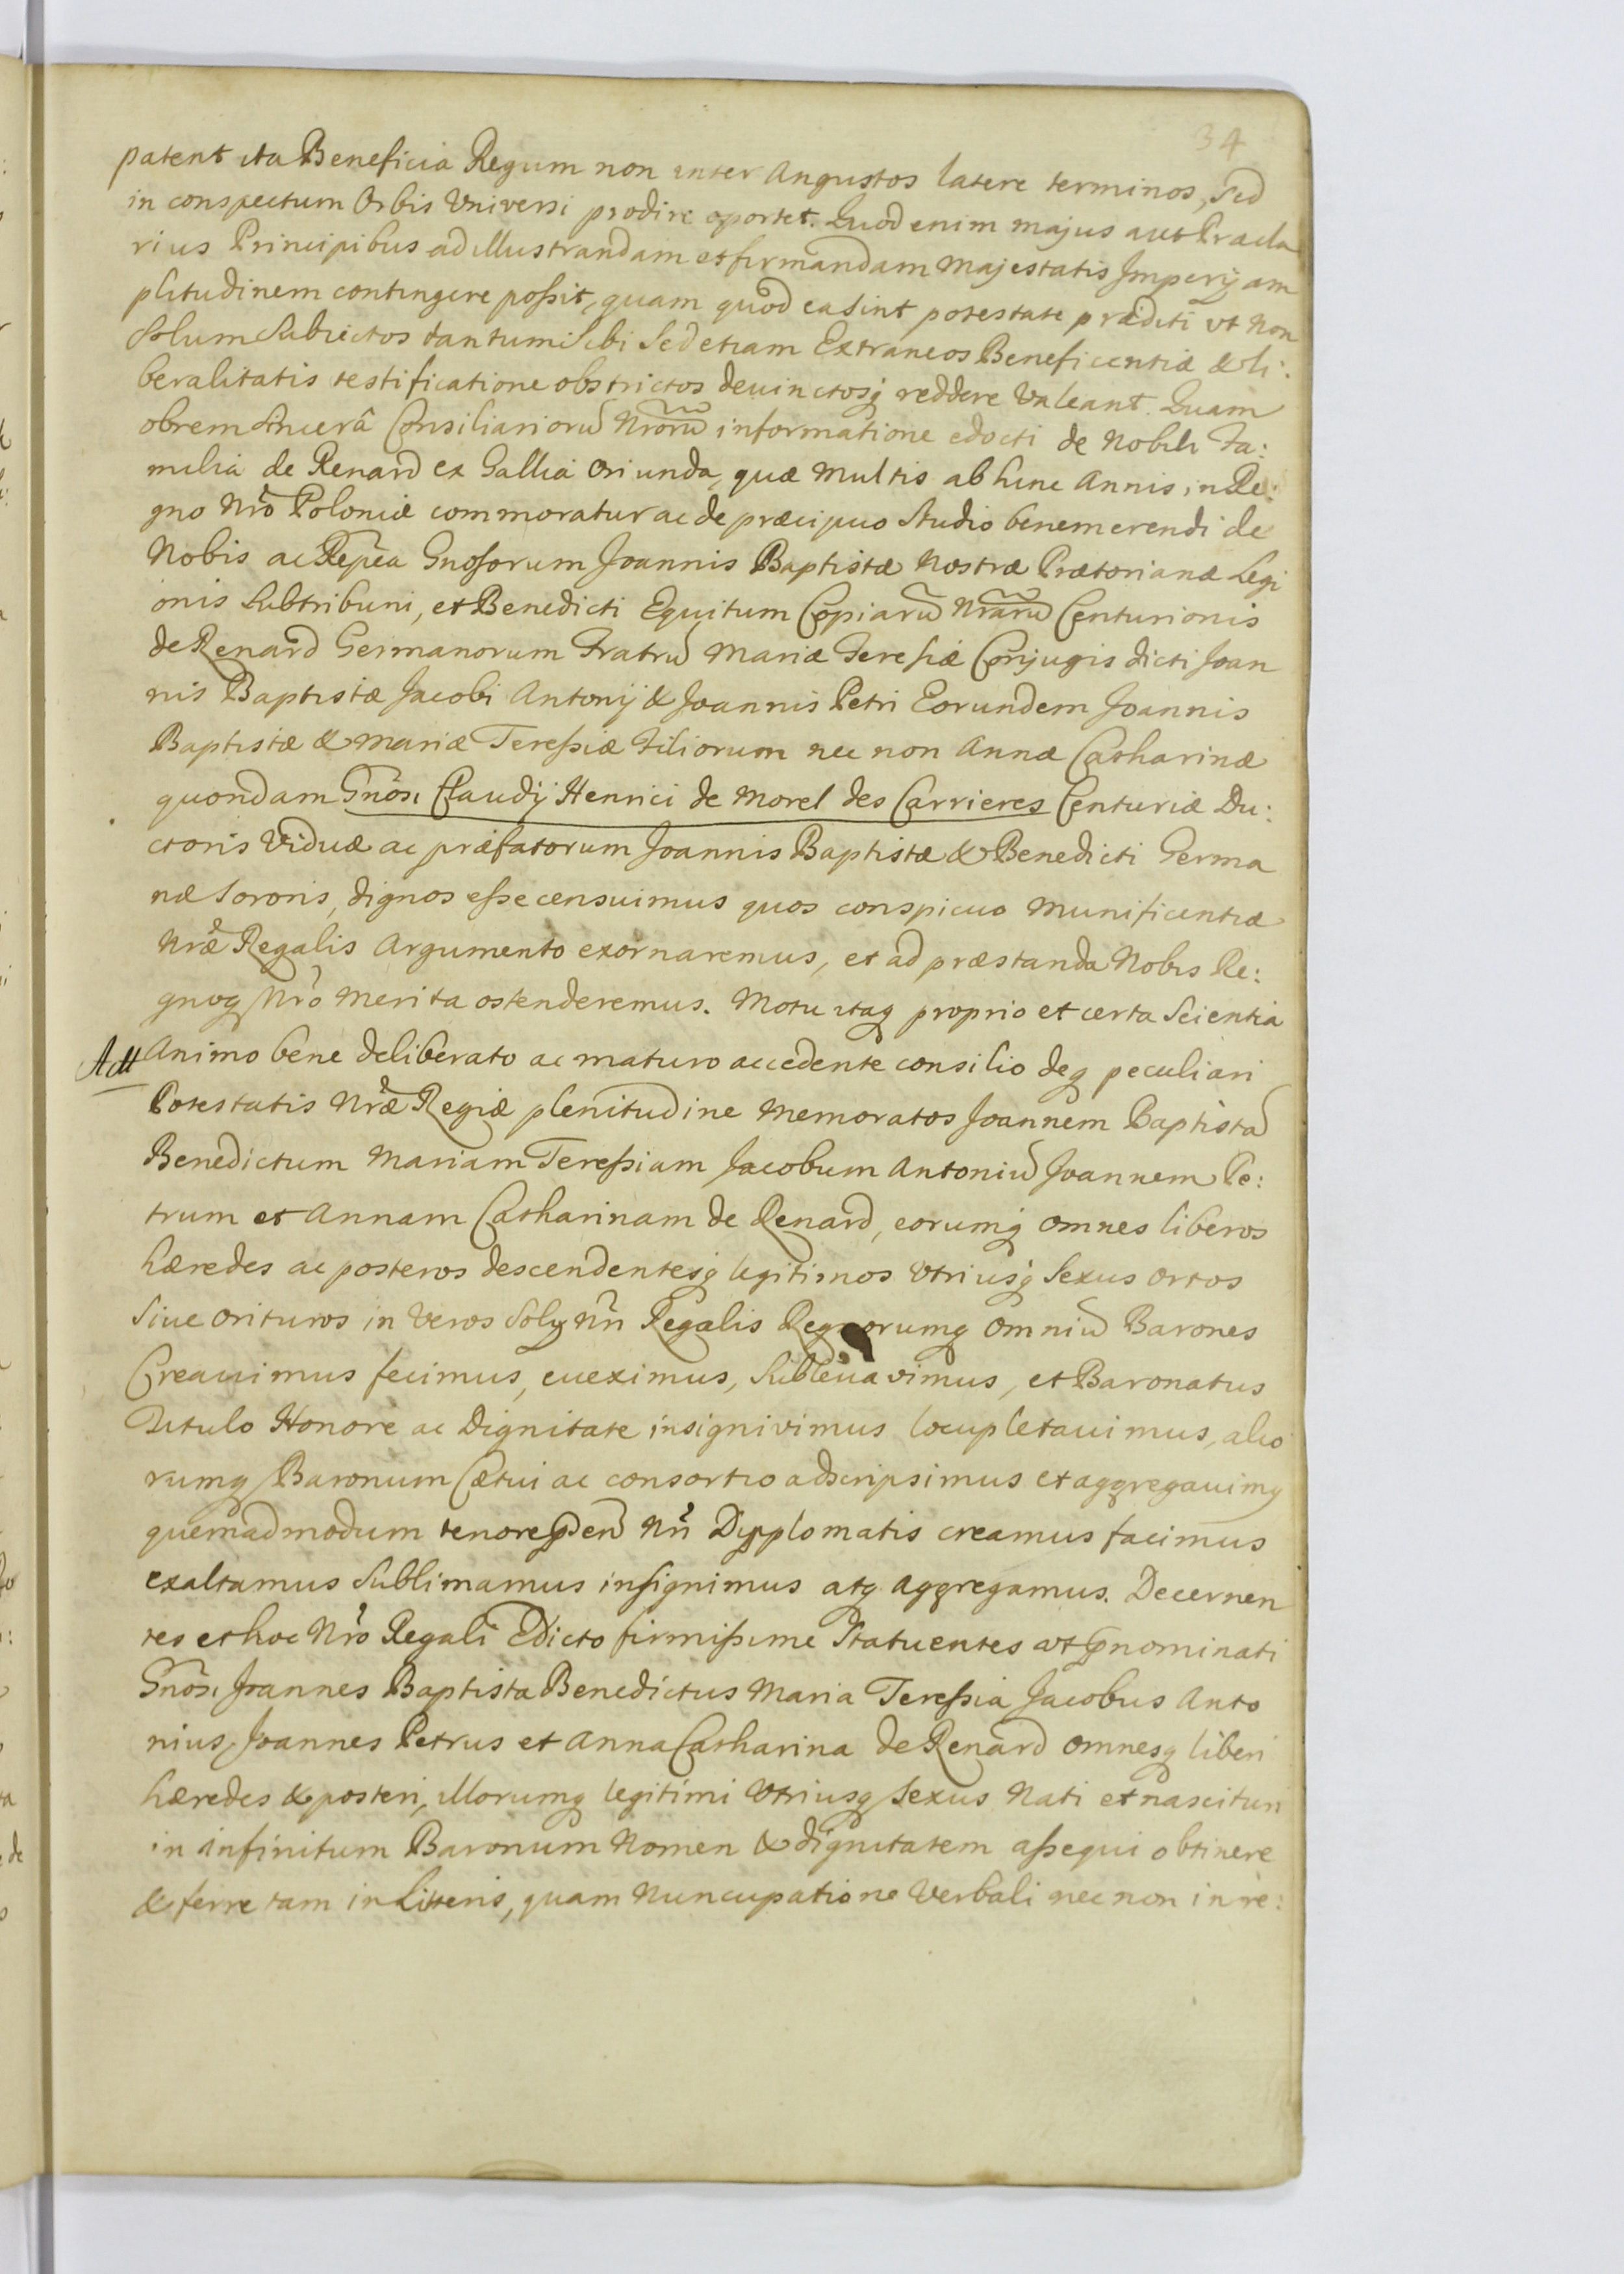 34
patent ita Beneficia Regum non inter Angustos latere terminos, sed
in conspectum Orbis Universi prodire oportet. Quod enim majus aut Praecla
rius Principibus ad illustrandam et firmandam Majestatis Imperij am
plitudinem contingere possit, quam quod ea sint potestate praediti vt non
Solum Subiectos tantum Sibi Sed etiam Extraneos Beneficentiæ & li:
beralitatis testificatione obstrictos deuinctosq reddere Valeant. Quam
obrem Sincerâ Consiliariorũ Nrõrũ informatione edocti de Nobili Fa:
milia de Renard ex Gallia Oriunda, quæ Multis ab hinc Annis in Re:
gno Nrõ Poloniæ commoratur ac de præcipuo Studio benemerendi de
Nobis ac Repca Gnosorum Joannis Baptistæ Nostræ Prætorianæ Legi
onis Subtribuni, et Benedicti Equitum Copiarũ Nrãrũ Centurionis
de Renard Germanorum Fratrũ Mariæ Teresiæ Conjugis dicti Joan
nis Baptistæ Jacobi Antonij & Joannis Petri Eorundem Joannis
Baptistæ & Mariæ Teressiæ Filiorum nec non Annæ Catharinæ
quondam Gnõsi Claudij Henrici de Morel des Carrieres Centuriæ Du:
ctoris Viduæ ac præfatorum Joannis Baptistæ & Benedicti Germa
næ Sororis, dignos esse censuimus quos conspicuo Munificentiæ
Nræ Regalis Argumento exornaremus, et ad præstanda Nobis Re:
gnoq Nrõ Merita ostenderemus. Motu itaq proprio et certa Scientia
Animo bene deliberato ac maturo accedente consilio deq peculiari
Potestatis Nræ Regiæ plenitudine Memoratos Joannem Baptistã
Benedictum Mariam Teressiam Jacobum Antoniũ Joannem Pe:
trum et Annam Catharinam de Renard, eorumq omnes liberos
hæredes ac posteros descendentesq legitimos Vtriusq Sexus ortos
Siue orituros in Veros Solij Nri Regalis Regnorumq Omniũ Barones
Creauimus fecimus, eueximus, Subleuavimus, et Baronatus
Titulo Honore ac Dignitate insignivimus locupletauimus, alio
rumq Baronum Cætui ac consortio adscripsimus et aggregauimq
quemadmodum tenore pñtiũ Nri Dyplomatis creamus facimus
exaltamus Sublimamus insignimus atq aggregamus. Decernen
tes et hoc Nrõ Regali Edicto firmissime Statuentes vt pnominati
Gnõsi Joannes Baptista Benedictus Maria Teressia Jacobus Anto
nius, Joannes Petrus et Anna Catharina de Renard omnesq liberi
hæredes & posteri, illorumq legitimi Vtriusq Sexus Nati et nascituri
in infinitum Baronum Nomen & dignitatem assequi obtinere
& ferre tam in Litteris, quam Nuncupatione Verbali nec non in re: